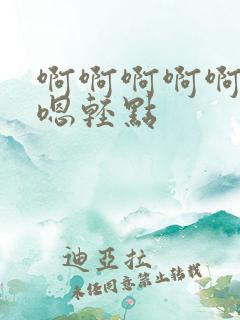 啊啊啊啊啊
嗯轻點
迪亞拉
未经同意禁止转载